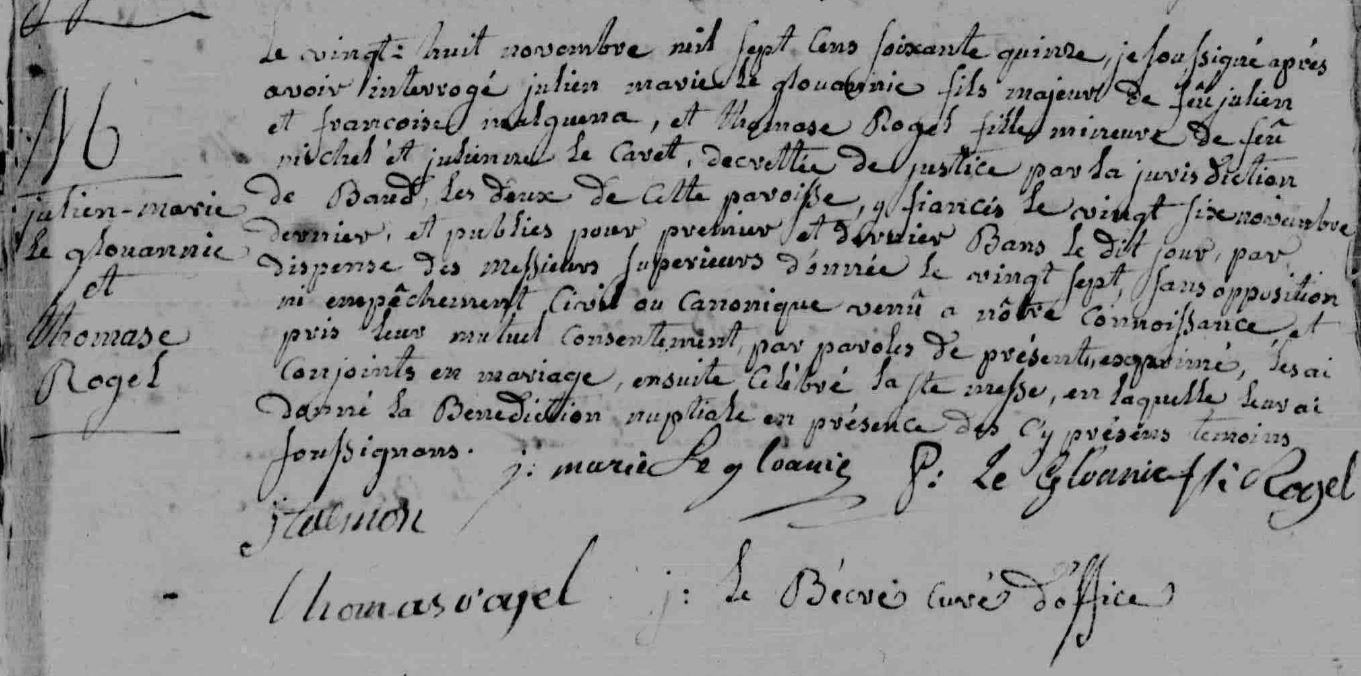 Le vingt-huit novembre mil sept cens soixante quinze, je soussigné après
avoir interrogé julien marie Le glouannic fils majeur de feû julien
et francoise malquena, et thomase Rogel fille mineure de feû
michel et julienne Le Cavet, decrettée de justice par la jurisdiction
de Baud, les deux de cette paroisse, y fiancés le vingt six novembre
dernier, et publiés pour premier et dernier Bans le dit jour, par
dispense des Messieurs superieurs donnée le vingt sept, sans opposition
ni empêchement Civil ou Canonique venû a nôtre Connoissance et
pris leur mutuel Consentement par paroles de présent exprimé, les ai
Conjoints en mariage, ensuite Celébré la ste messe, en laquelle leur ai
donné la Benediction nuptiale en présence des Cy présens temoins
soussignans.
16
julien-marie
Le glouannic
et
thomase
Rogel
j: marie Le gloanic P: Le Glouanic Rogel
j talmon
thomas rogel j: Le Bécré curé d'office